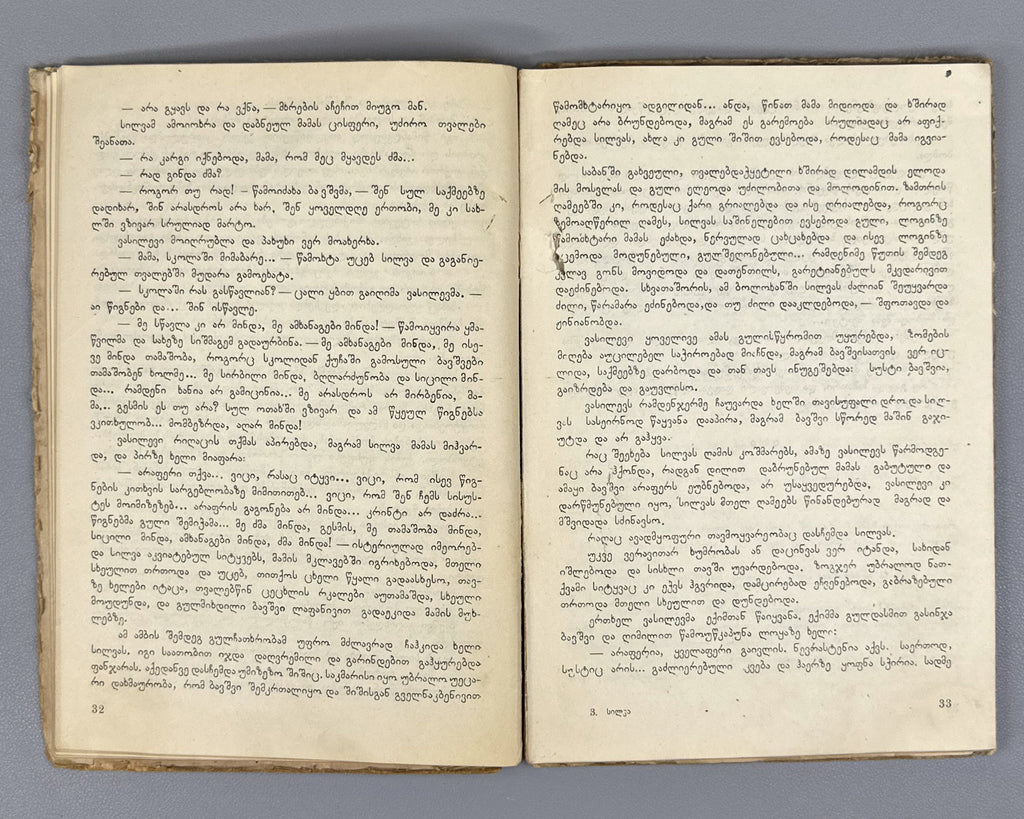 — არა გყავს და რა ვქნა, — მხრების აჩეჩით მიუგო მან.
სილვამ ამოიოხრა და დაბნეულ მამას ცისფერი, უძირო თვალები
შეანათა.
— რა კარგი იქნებოდა, მამა, რომ მეც მყავდეს ძმა...
— რად გინდა ძმა?
— როგორ თუ რად! – წამოიძახა ბავშვმა, — შენ სულ საქმეებზე
დადიხარ, შინ არასდროს არა ხარ. შენ ყოველდღე ერთობი, მე კი სახ-
ლში ვზივარ სრულიად მარტო.
ვასილევი მოიღრუბლა და პასუხი ვერ მოახერხა.
— მამა, სკოლაში მიმაბარე... — წამოხტა უცებ სილვა და გაგანიე-
რებულ თვალებში მუდარა გამოეხატა.
— სკოლაში რას გასწავლიან? — ცალი ყბით გაიღიმა ვასილევმა. —
აი წიგნები და... შინ ისწავლე.
— მე სწავლა კი არ მინდა, მე ამხანაგები მინდა! — წამოიყვირა ყმა-
წვილმა და სახეზე სიშმაგემ გადაურბინა. — მე ამხანაგები მინდა, მე ისე-
ვე მინდა თამაშობა, როგორც სკოლიდან ქუჩაში გამოსული ბავშვები
თამაშობენ ხოლმე... მე სირბილი მინდა, ბღლარძუნობა და სიცილი მინ-
და... რამდენი ხანია არ გამიცინია... მე არასდროს არ მირბენია, მა-
მა,.. გესმის ეს თუ არა? სულ ოთახში ვზივარ და ამ წყეულ წიგნებსა
ვკითხულობ... მომბეზრდა, აღარ მინდა!
ვასილევი რიღაცის თქმას აპირებდა, მაგრამ სილვა მამას მიჰვარ-
და, და პირზე ხელი მიაფარა:
— არაფერი თქვა... ვიცი, რასაც იტყვი... ვიცი, რომ ისევ წიგ-
ნების კითხვის სარგებლობაზე მიმითითებ... ვიცი, რომ შენ ჩემს სისუს-
ტეს მოიმიზეზებ... არაფრის გაგონება არ მინდა... კრინტი არ დაძრა...
წიგნებმა გული შემიჭამა... მე ძმა მინდა, გესმის, მე თამაშობა მინდა,
სიცილი მინდა, ამხანაგები მინდა, ძმა მინდა! — ისტერიულად იმეორებ-
და სილვა აკვიატებულ სიტყვებს, მამის მკლავებში იგრიხებოდა, მთელი
სხეულით თრთოდა და უცებ, თითქოს ცხელი წყალი გადაასხესო, თავ-
ზე ხელები იტაცა, თვალებწინ ცეცხლის რკალები აუთამაშდა, სხეული
მოუდუნდა, და გულმიხდილი ბავშვი ლაფანივით გადაეკიდა მამის მუხ-
ლებზე.
ამ ამბის შემდეგ გულჩათხრობამ უფრო მძლავრად ჩაჰკიდა ხელი
სილვას. იგი საათობით იჯდა დაღვრემილი და გარინდებით გაჰყურებდა
ფანჯარას. აქედანვე დასჩემდა უმიზეზო შიშიც. საკმარისი იყო უბრალო უეცა-
რი დახმაურობა, რომ ბავშვი შემკრთალიყო და შიშისგან გველნაკბენივით
32
წამომხტარიყო ადგილიდან... ანდა, წინათ მამა მიდიოდა და ხშირად
ღამეც არა ბრუნდებოდა, მაგრამ ეს გარემოება სრულიადაც არ აფიქ-
რებდა სილვას, ახლა კი გული შიშით ევსებოდა, როდესაც მამა იგვია-
ნებდა.
საბანში გახვეული, თვალებდაჭყეტილი ხშირად დილამდის ელოდა
მის მოსვლას და გული ელეოდა უძილობითა და მოლოდინით. ზამთრის
ღამეებში კი, როდესაც ქარი გრიალებდა და ისე ღრიალებდა, როგორც
ზემოაღწერილ ღამეს, სილვას საშინელებით ევსებოდა გული, ლოგინზე
წამომხტარი მამას ეძახდა, ნერვულად ცახცახებდა და ისევ ლოგინზე
ეცემოდა მოდუნებული, გულშეღონებული... რამდენიმე წუთის შემდეგ
კვლავ გონს მოვიდოდა და დათენთილს, გარეტიანებულს მკვდარივით
დაეძინებოდა. სხვათაშორის, ამ ბოლოხანში სილვას ძალიან შეუყვარდა
ძილი, წარამარა ეძინებოდა,და თუ ძილი დააკლდებოდა, — შფოთავდა და
ჟინიანობდა.
ვასილევი ყოველივე ამას გულისწყრომით უყურებდა, ზომების
მიღება აუცილებელ საჭიროებად მიაჩნდა, მაგრამ ბავშვისათვის ვერ იც-
ლიდა, საქმეებზე დარბოდა და თან თავს ინუგეშებდა: სუსტი ბავშვია,
გაიზრდება და გაუვლისო.
ვასილევს რამდენჯერმე ჩაუვარდა ხელში თავისუფალი დრო და სილ-
ვას სასეირნოდ წაყვანა დააპირა, მაგრამ ბავშვი სწორედ მაშინ გაჯი-
უტდა და არ გაჰყვა.
რაც შეეხება სილვას ღამის კოშმარებს, ამაზე ვასილევს წარმოდგე-
ნაც არა ჰქონდა, რადგან დილით დაბრუნებულ მამას გაბუტული და
ამაყი ბავშვი არაფერს ეუბნებოდა, არ უსაყვედურებდა. ვასილევი კი
დარწმუნებული იყო, სილვას მთელ ღამეებს წინანდებურად მაგრად და
მშვიდად სძინავსო.
რაღაც ავადმყოფური თავმოყვარეობაც დასჩემდა სილვას.
უკვე ვერავითარ ხუმრობას ან დაცინვას ვერ იტანდა, სახიდან
იშლებოდა და სისხლი თავში უვარდებოდა. ზოგჯერ უბრალოდ ნათ-
ქვამი სიტყვაც კი ექვს ჰგვრიდა, დამცირებად ეჩვენებოდა, გაბრაზებული
თრთოდა მთელი სხეულით და დუნდებოდა.
ერთხელ ვასილევმა ექიმთან წაიყვანა. ექიმმა გულდასმით გასინჯა
ბავშვი და ღიმილით წამოუწკაპუნა ლოყაზე ხელი:
— არაფერია, ყველაფერი გაივლის. ნევრასტენია აქვს. საერთოდ,
სუსტიც არის... გაძლიერებული კვება და ჰაერზე ყოფნა სჭირია. სადმე
3. სილვა
33